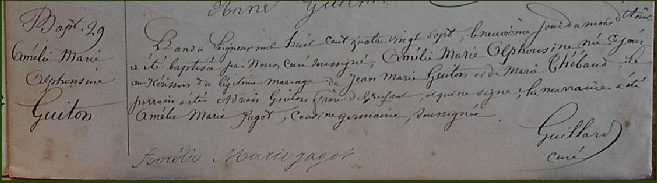 Bapt. 29
Amélie Marie
Alphonsine
Guiton
L'an du Seigneur mil huit cent quatre vingt sept, le neuvième jour du mois d'Août
a été baptisée par Nous, curé soussigné, Amélie Marie Alphonsine née ce jour
au du légitime mariage de Jean Marie Guiton et de Marie Thébaud. Le
parrain a été Guiton qui ne signe, la marraine a été
Amélie Marie Jagot, cousine germaine, soussignée.
Guillard
curé
Amélie Marie Jagot